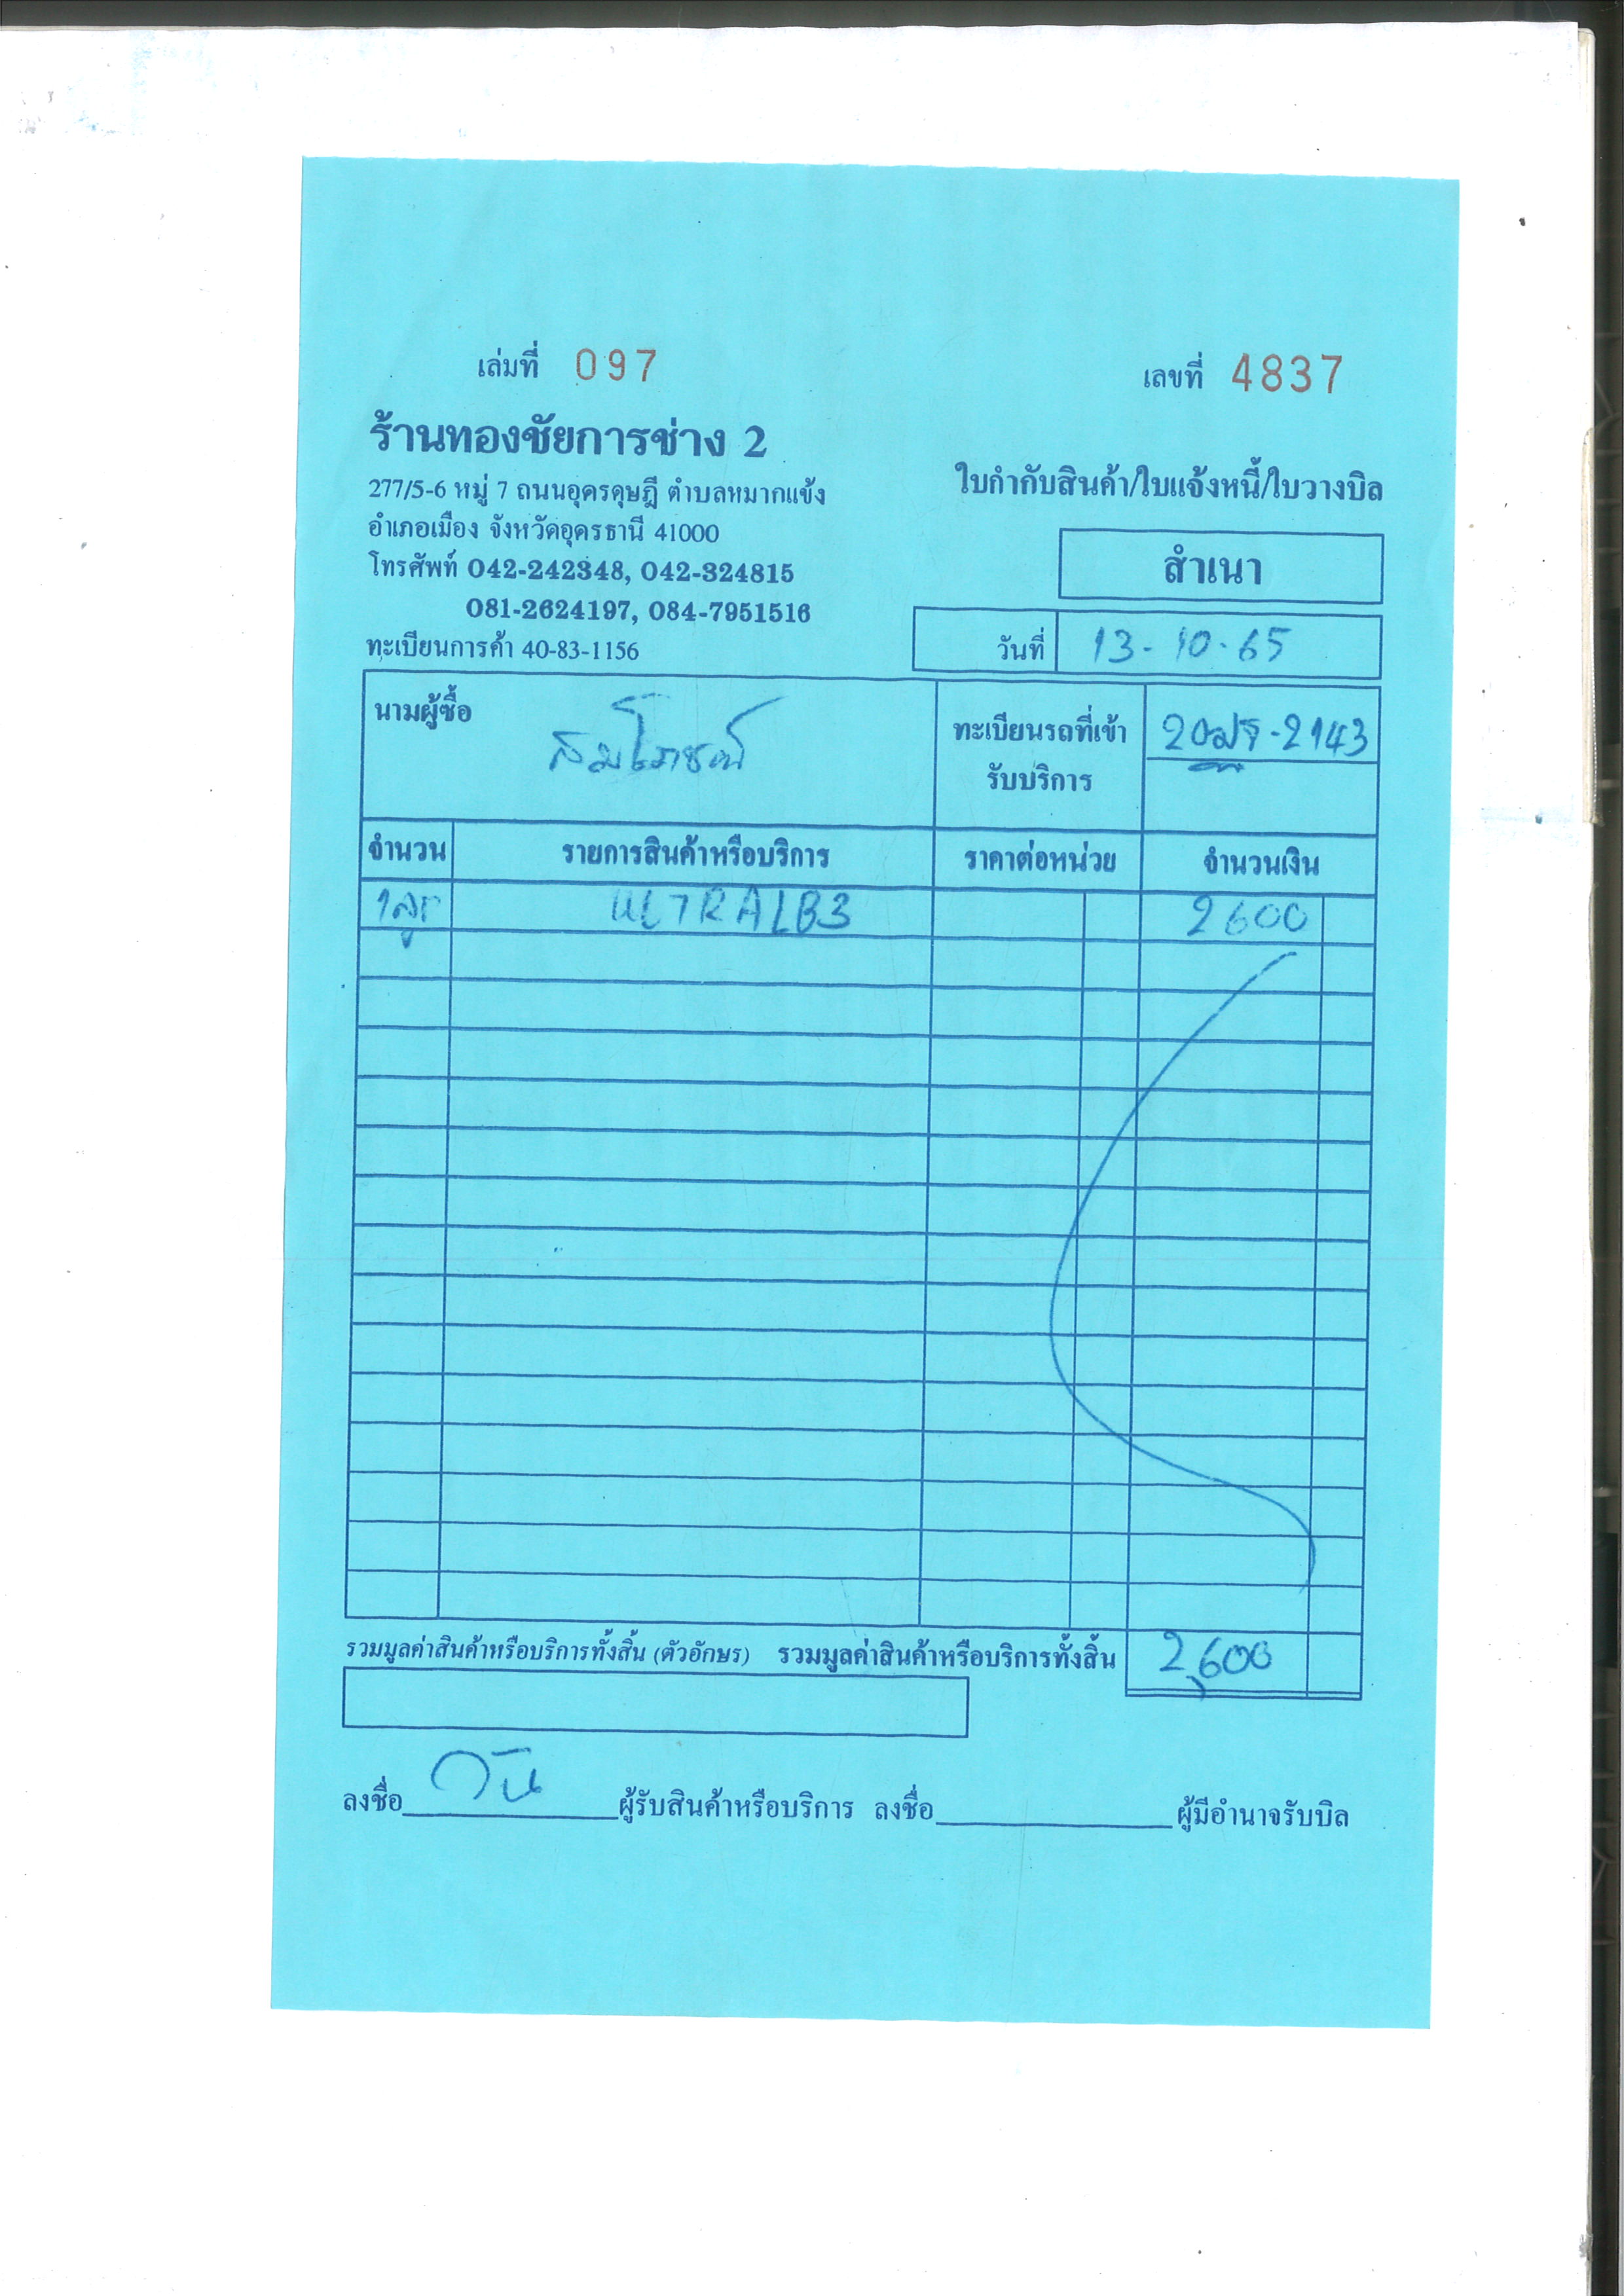 เล่มที่ 097
เลขที่ 4837
ร้านทองชัยการช่าง 2
277/5-6 หมู่ 7 ถนนอุดรดุษฎี ตำบลหมากแข้ง
อำเภอเมือง จังหวัดอุดรธานี 41000
โทรศัพท์ 042-242348, 042-324815
081-2624197, 084-7951516
ทะเบียนการค้า 40-83-1156
ใบกำกับสินค้า/ใบแจ้งหนี้/ใบวางบิล
สำเนา
วันที่ 13-10-65
นามผู้ซื้อ สมโภชณ์
ทะเบียนรถที่เข้า
รับบริการ
-2143
จำนวน รายการสินค้าหรือบริการ ราคาต่อหน่วย จำนวนเงิน
1ลูก ULTRA LB3 2600
รวมมูลค่าสินค้าหรือบริการทั้งสิ้น (ตัวอักษร) รวมมูลค่าสินค้าหรือบริการทั้งสิ้น 2,600
ลงชื่อ วัน ผู้รับสินค้าหรือบริการ ลงชื่อ ผู้มีอำนาจรับบิล